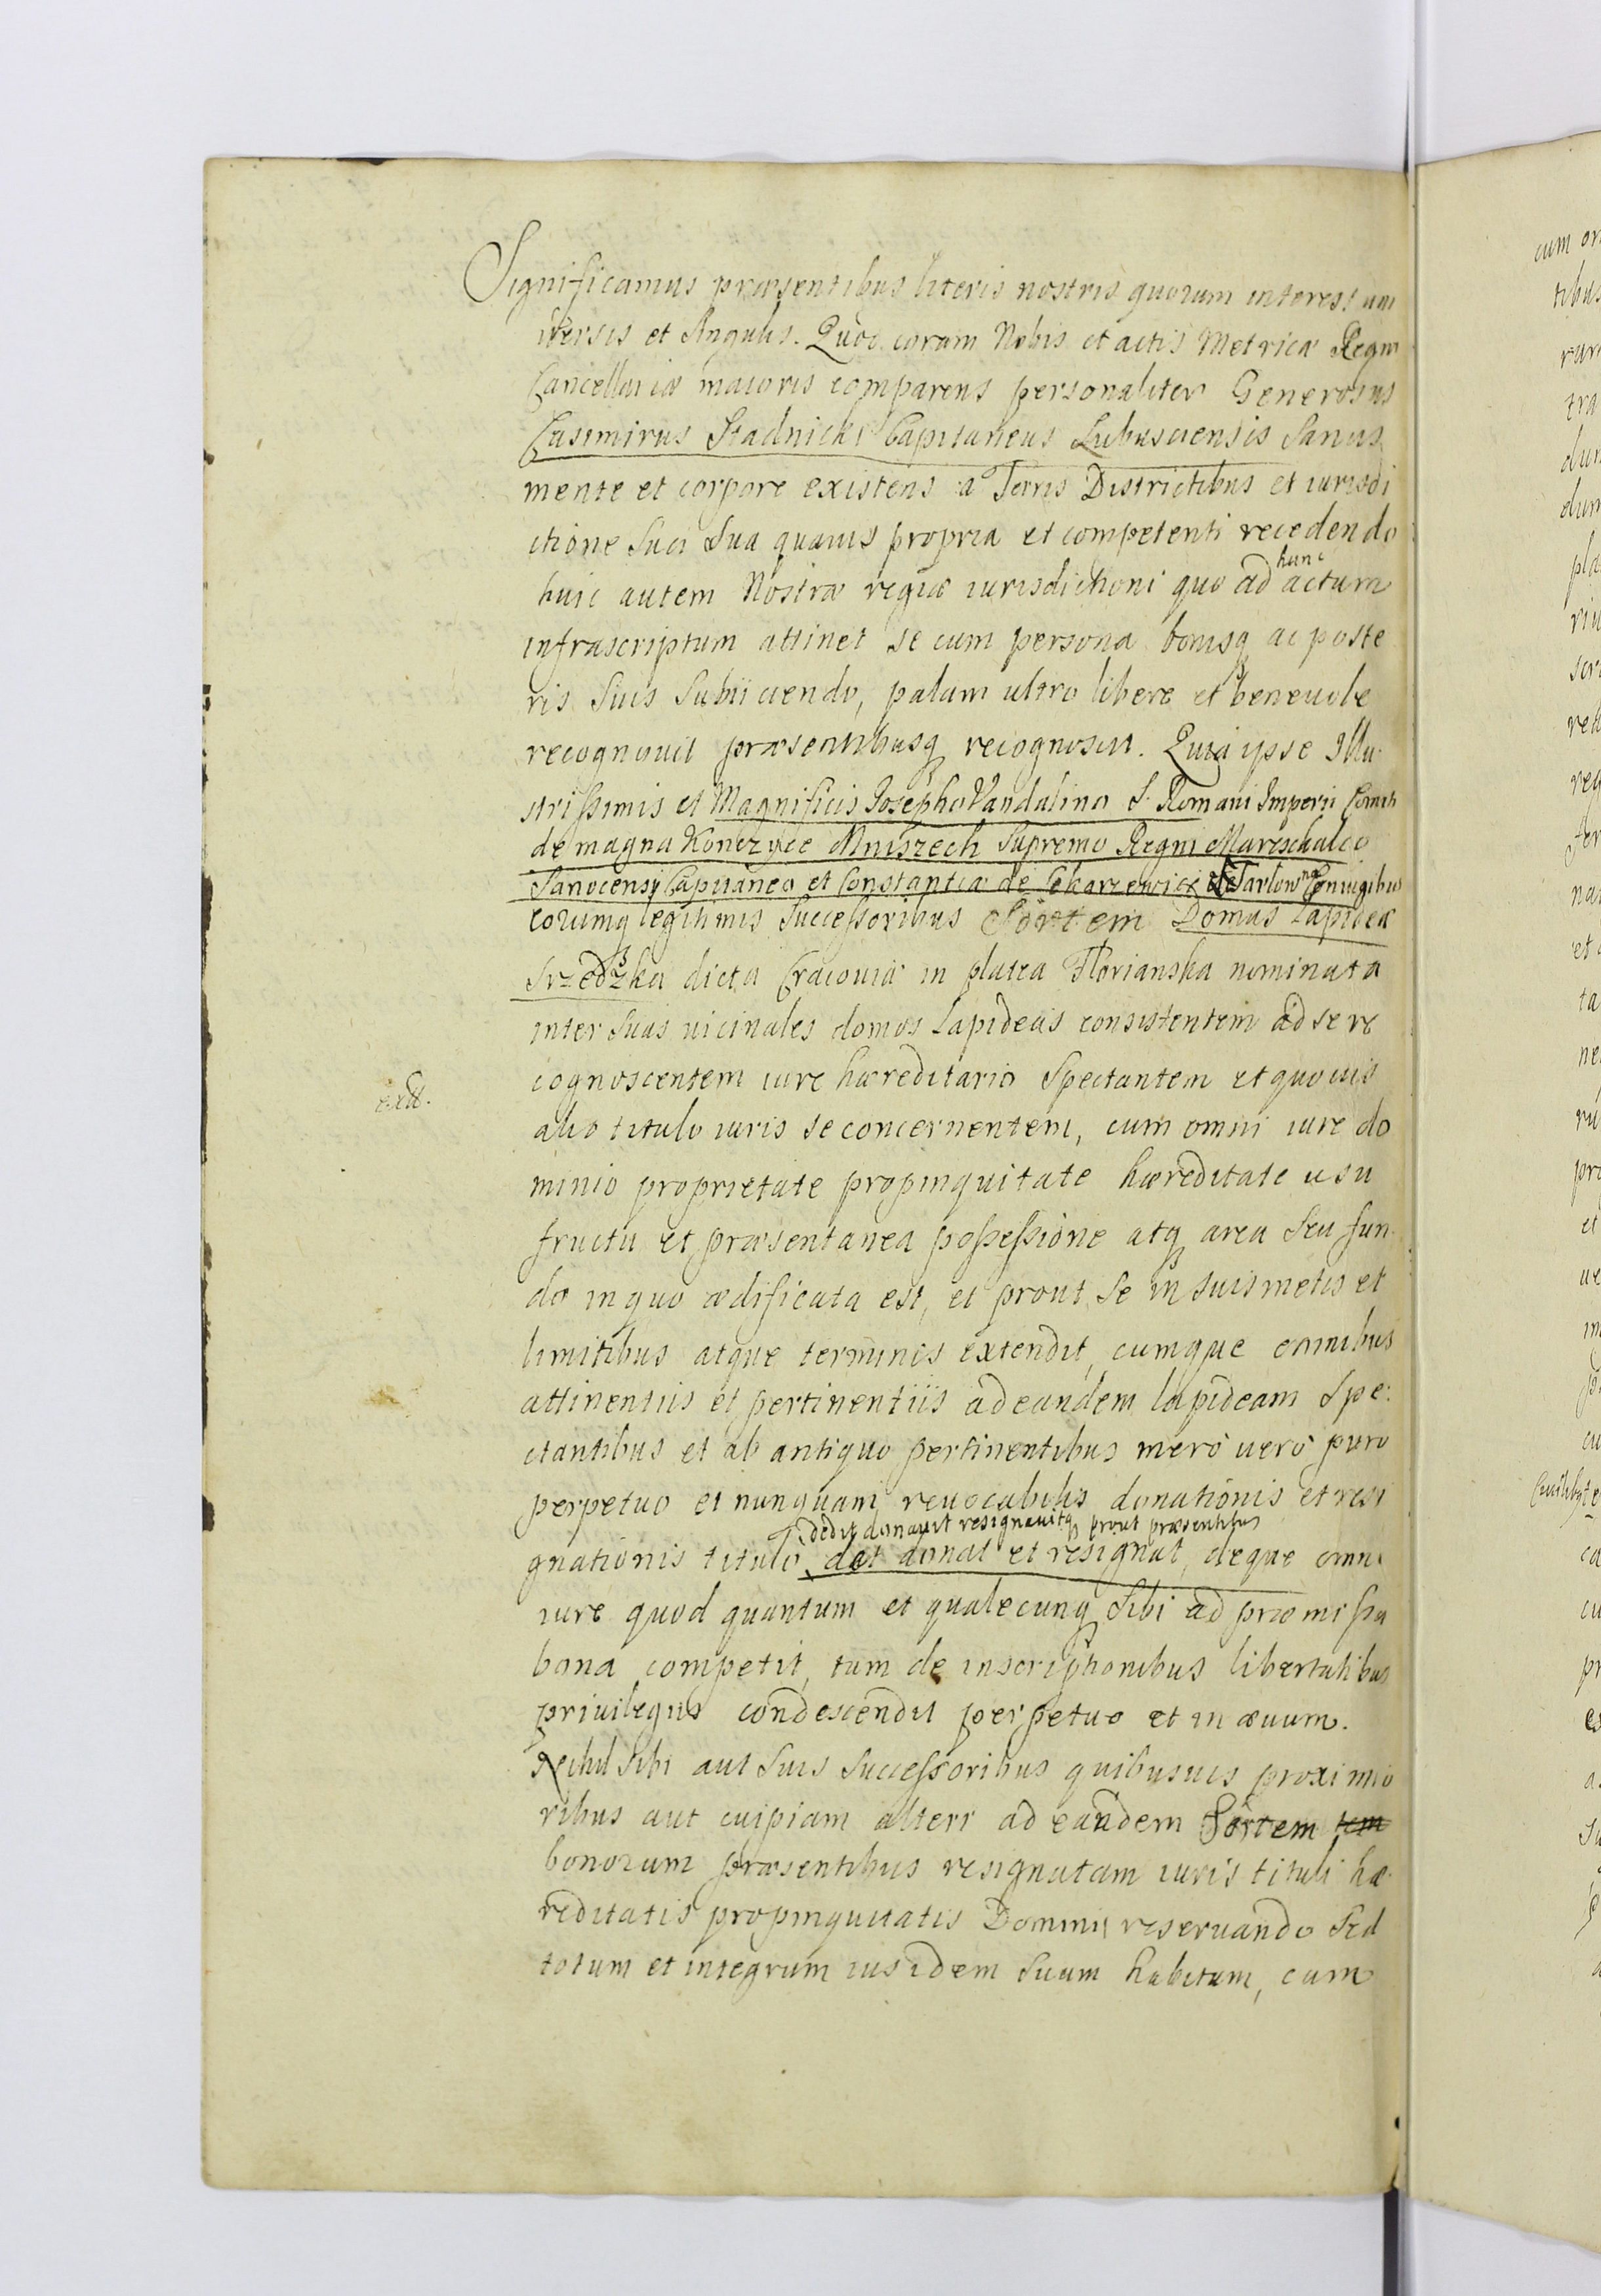 Significamus præsentibus literis nostris quorum interest uni
versis et singulis. Quod coram Nobis et actis Metricæ Regni
Cancellariæ maioris comparens personaliter Generosus
Casimirus Stadnicki Capitaneus Lubaczensis Sanus
mente et corpore existens a Terris Districtibus et iurisdi
ctione Suci Sua quavis propria et competenti recedendo
hunc
huic autem Nostræ regiæ iurisdictioni quo ad actum
infrascriptum attinet se cum persona bonisq ac poste
ris Suis Subiiciendo, palam ultro libere et beneuole
recognouit præsentibusq recognoscit. Quia ipse Illu
strissimis et Magnificis Josepho Vandalino S. Romani Imperii Comiti
de magna Konczyce Mniszech Supremo Regni Mareschalco
Sanocensi Capitaneo et Constantiæ de Tarlow Coniugibus
eorumq legitimis Successoribus Sortem Domus Lapideæ
Srzedzka dicta Cracouiæ in platea Florianska nominata
inter Suas uicinales domos Lapideas consistentem ad se re
cognoscentem iure hæreditario Spectantem et quouis
alio titulo iuris se concernentem, cum omni iure do
minio proprietate propinquitate hæreditate usu
fructu et præsentanea possessione atq area Seu fun
do in quo ædificata est, et prout Se in suis metis et
limitibus atque terminis extendit, cumque omnibus
attinentiis et pertinentiis ad eandem lapideam Spe:
ctantibus et ab antiquo pertinentibus merò uerò puro
perpetuo et nunquam reuocabilis donationis et resi
dedit donauit resignauitq prout præsentibus
gnationis titulo dat donat et resignat, deque omni
iure quod quantum et qualecunq Sibi ad præmissa
bona competit, tum de inscriptionibus libertatibus
priuilegiis condescendit perpetuo et in æuum.
Nihil Sibi aut Suis Successoribus quibusuis proximio
ribus aut cuipiam alteri ad eandem Sortem tem
bonorum præsentibus resignatam iuris tituli hæ
reditatis propinquitatis Dominii reseruando Sed
totum et integrum ius idem Suum habitum, cum